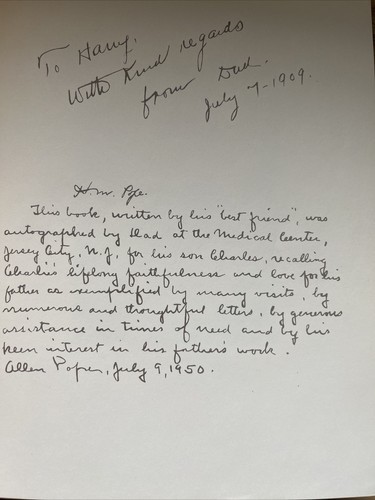 To Harry.
With Kind regards
from Dad.
July 7-1909.
This book, written by his "best friend", was
autographed by Dad at the Medical Center,
Jersey City, N.J. for his son Charles, recalling
Charlie's lifelong faithfulness and love for his
father as exemplified by many visits, by
numerous and thoughtful letters, by generous
assistance in times of need and by his
keen interest in his father's work.
Allen July 9, 1950.